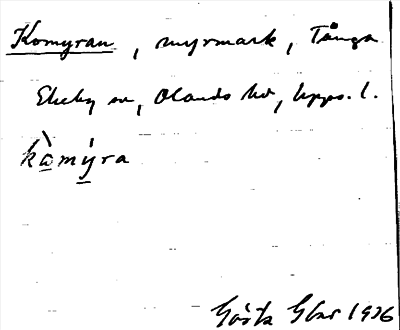 Komyran, myrmark, Tånga
Ekeby sn, Olands hd, Upps. l.
kòmýra
Gösta 1936